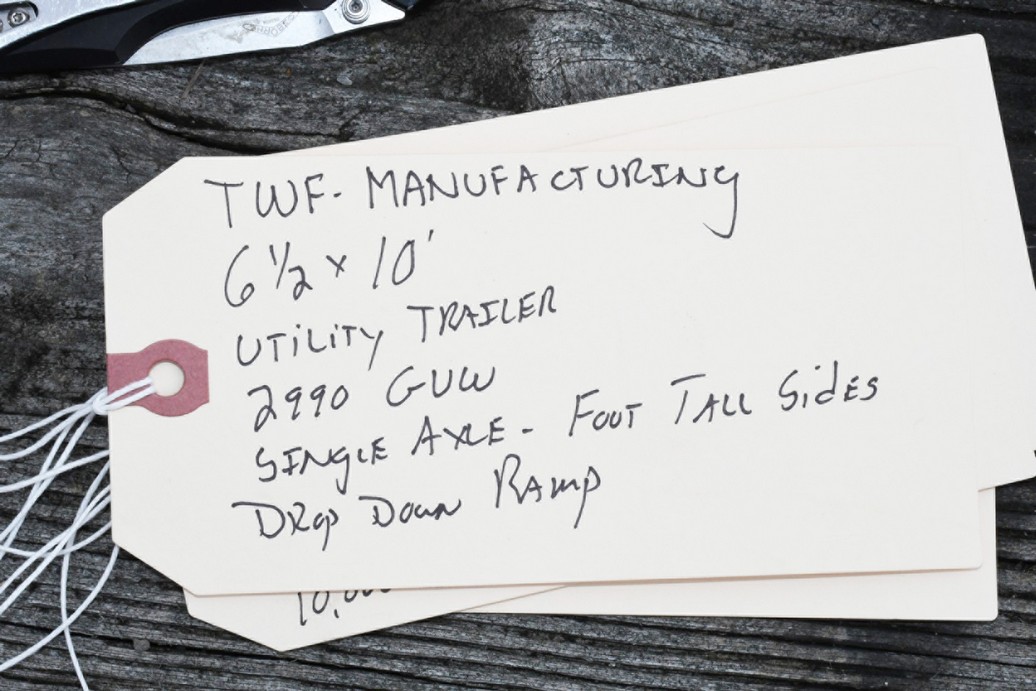 TWF- MANUFACTURING
6 1/2 x 10'
UTiLiTY TRAILER
2990 GVW
SINGLE AXLE - FOOT TALL SIdES
DROP DOWN RAMP